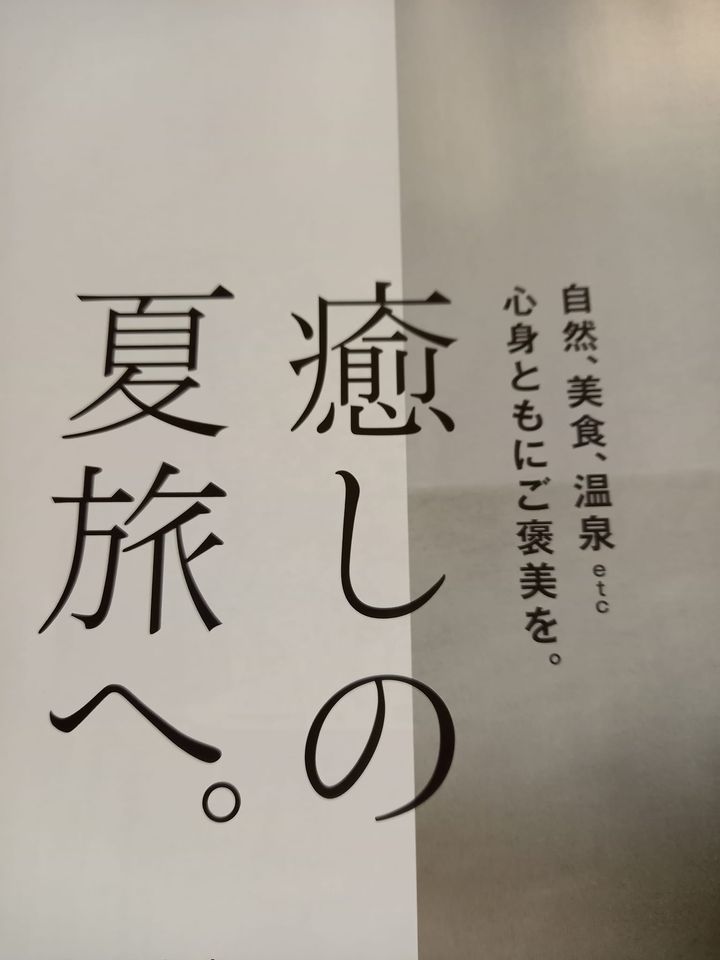 自然、美食、温泉etc
心身ともにご褒美を。
癒しの
夏旅へ。